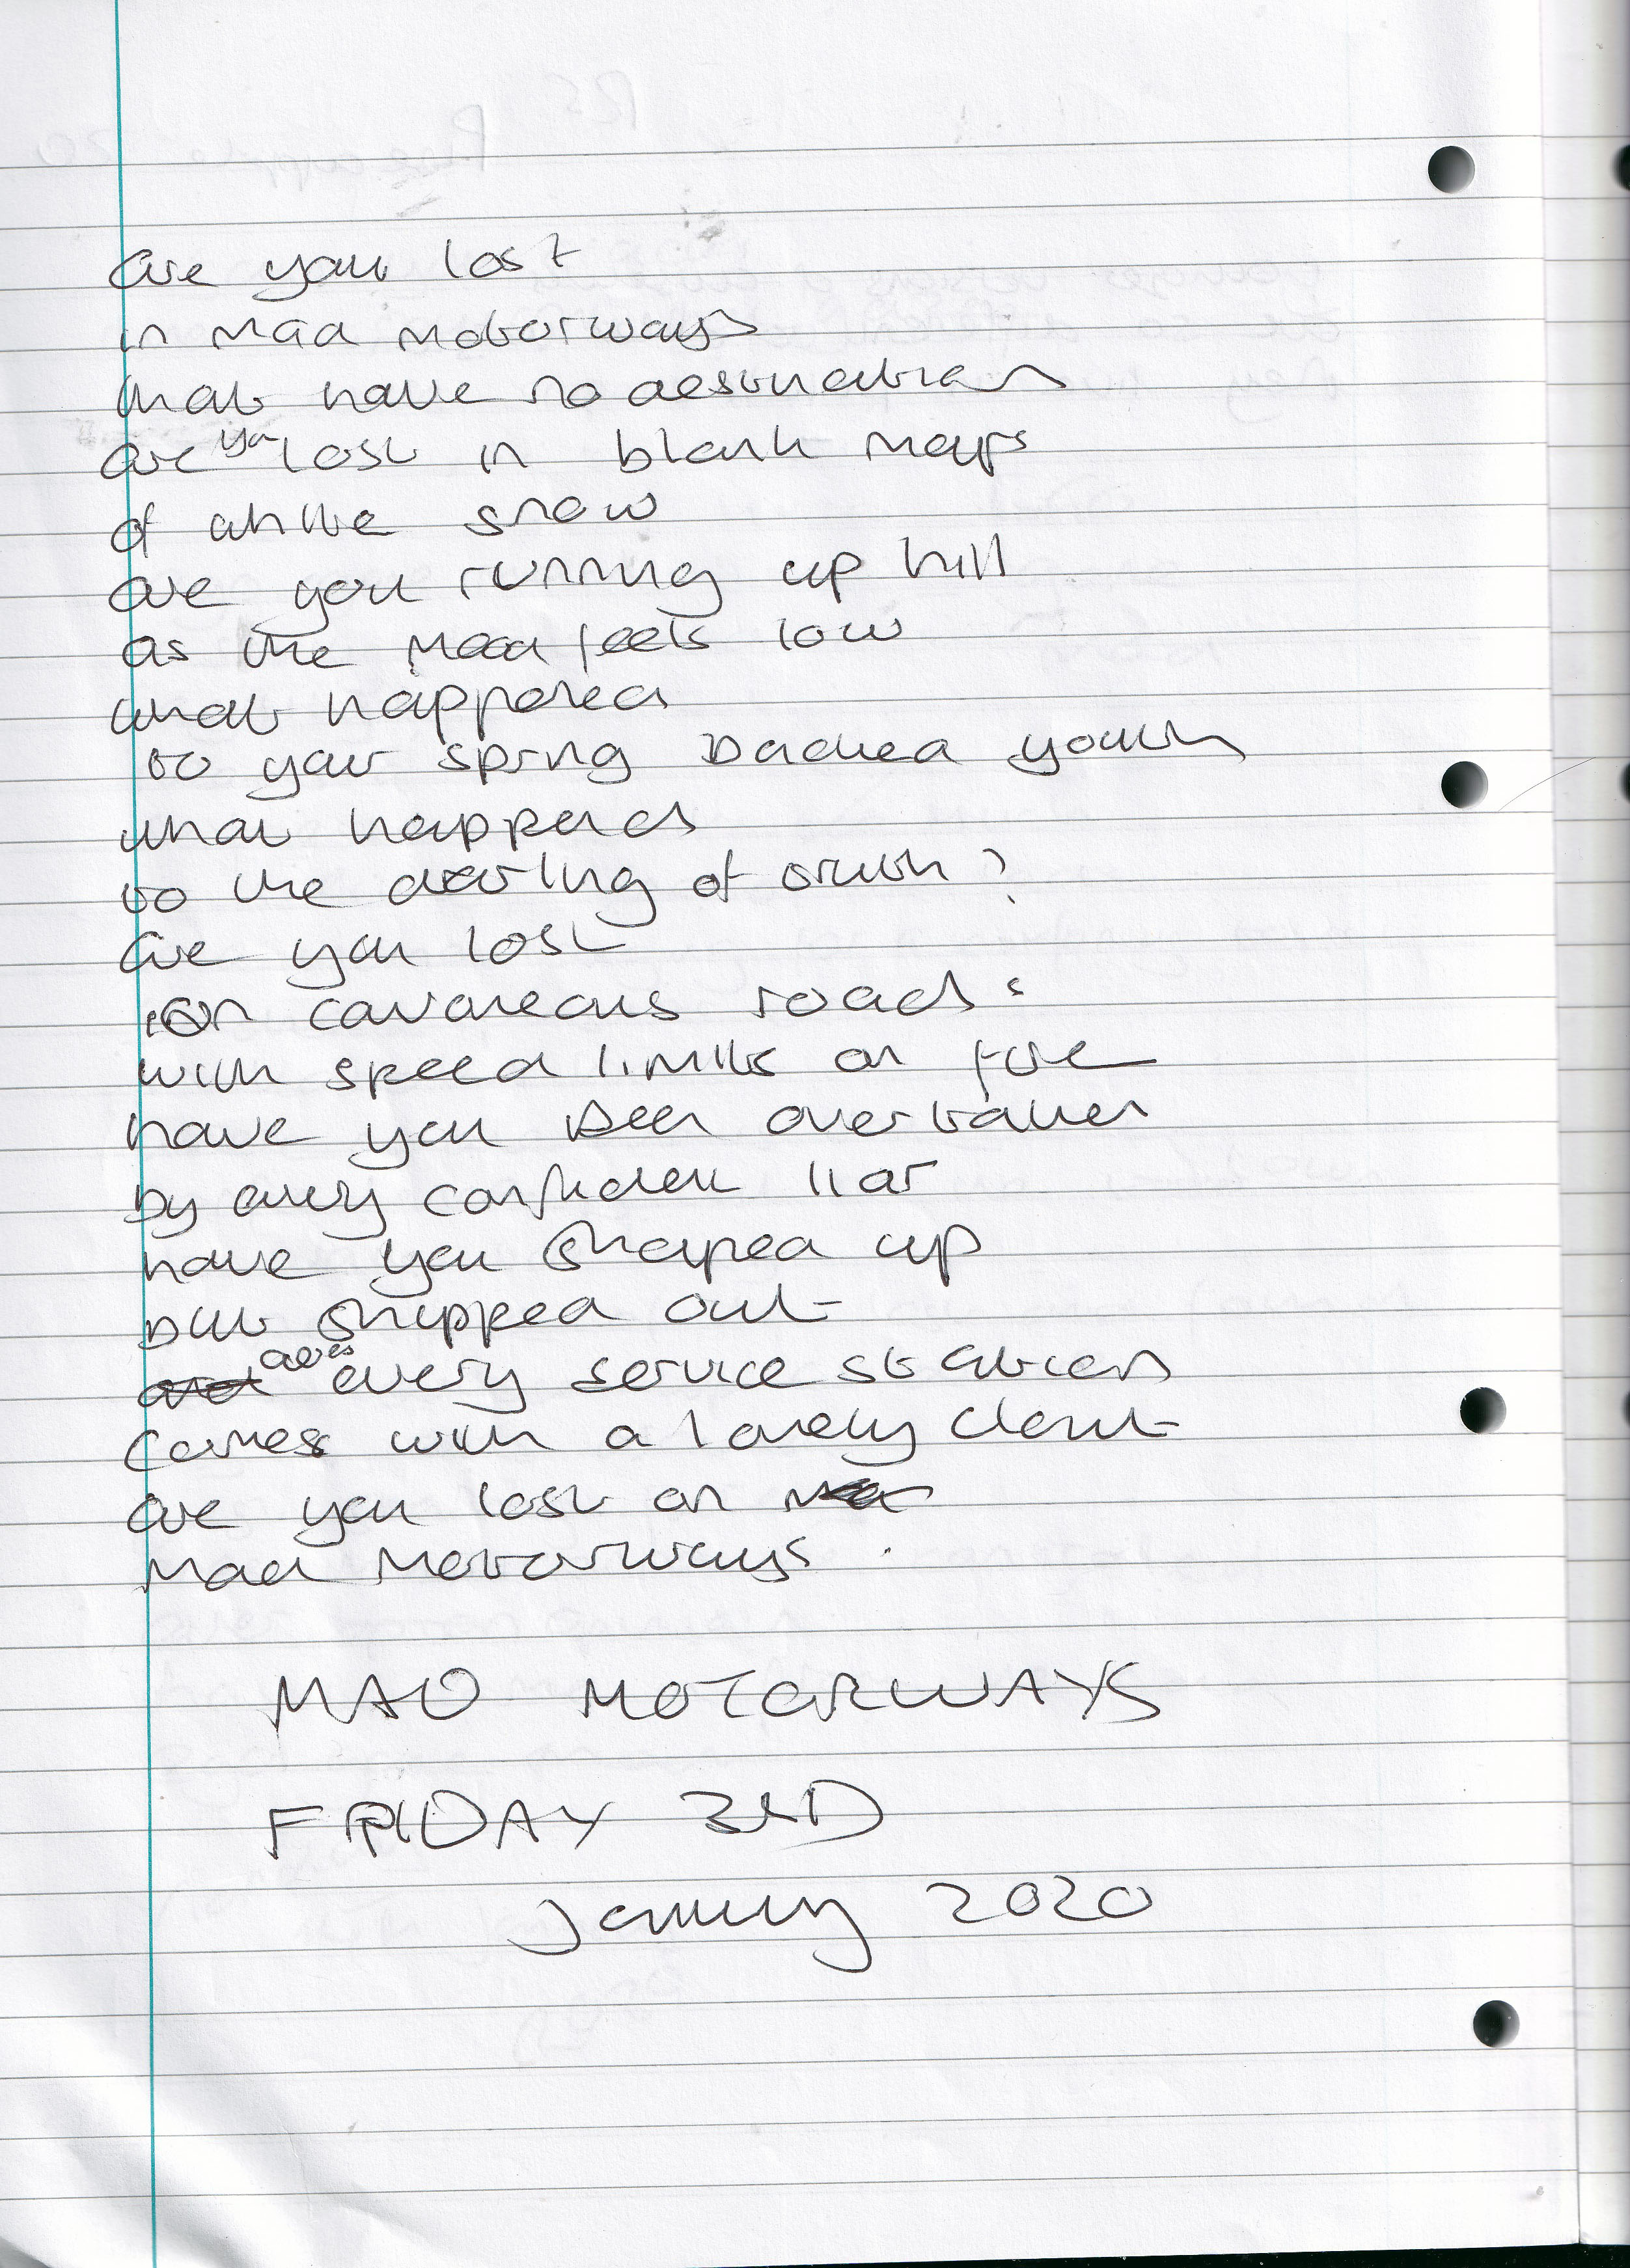 are you lost
in mad motorways
that have no destination
are you lost in blank maps
of white snow
are you running up hill
as the mood feels low
what happened
to your spring backed youth
what happens
to the darling of truth?
are you lost
on cavaneous roads
with speed limits on fire
have you been overtaken
by every confident liar
have you shaped up
but shipped out
does every service station
comes with a lonely clout
are you lost on
mad motorways.
MAD MOTORWAYS
FRIDAY 3RD
January 2020